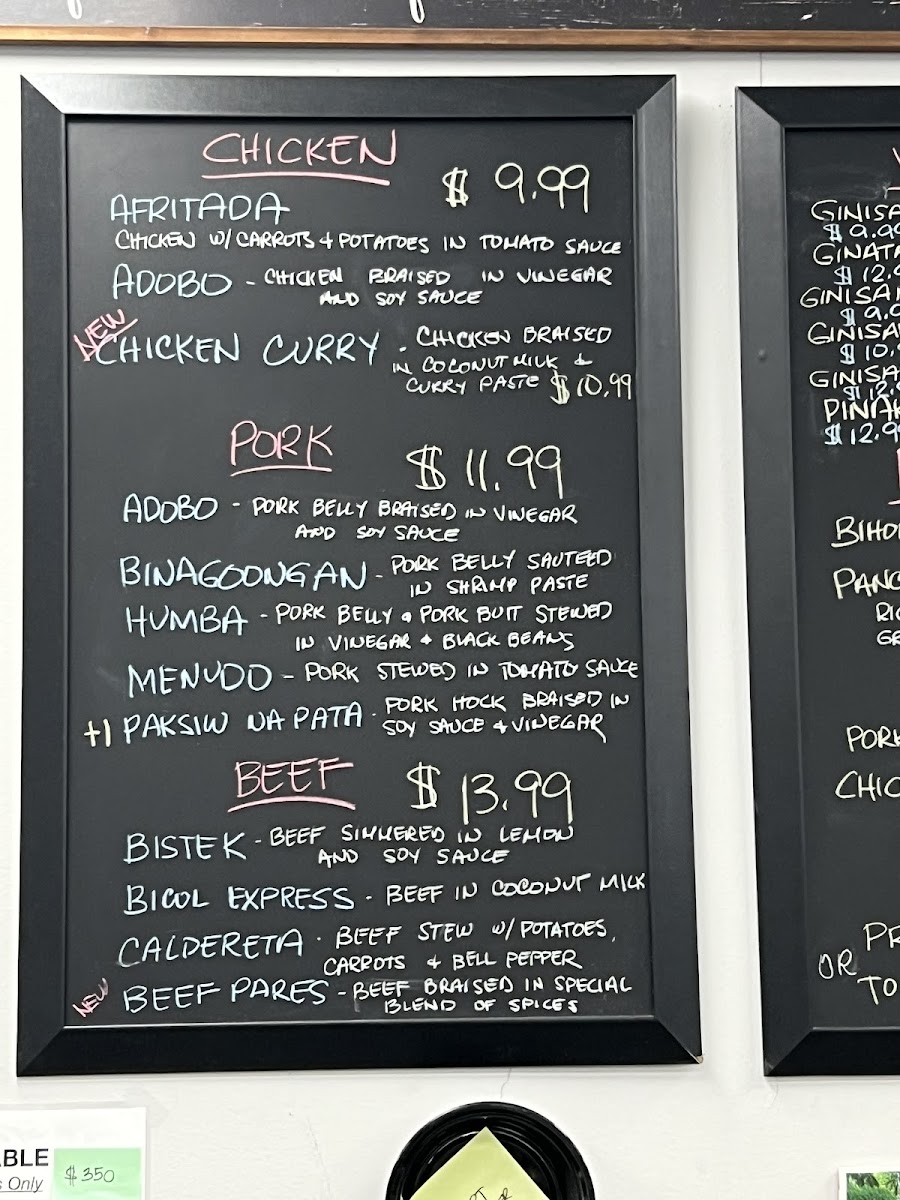 CHICKEN
$ 9.99
AFRITADA
CHICKEN W/ CARROTS & POTATOES IN TOMATO SAUCE
ADOBO - CHICKEN BRAISED IN VINEGAR
AND SOY SAUCE
NEW
CHICKEN CURRY - CHICKEN BRAISED
IN COCONUT MILK &
CURRY PASTE $10.99
PORK
$ 11.99
ADOBO - PORK BELLY BRAISED IN VINEGAR
AND SOY SAUCE
BINAGOONGAN - PORK BELLY SAUTEED
IN SHRIMP PASTE
HUMBA - PORK BELLY & PORK BUTT STEWED
IN VINEGAR & BLACK BEANS
MENUDO - PORK STEWED IN TOMATO SAUCE
+1 PAKSIW NA PATA - PORK HOCK BRAISED IN
SOY SAUCE & VINEGAR
BEEF
$ 13.99
BISTEK - BEEF SIMMERED IN LEMON
AND SOY SAUCE
BICOL EXPRESS - BEEF IN COCONUT MILK
CALDERETA - BEEF STEW W/ POTATOES,
CARROTS & BELL PEPPER
NEW BEEF PARES - BEEF BRAISED IN SPECIAL
BLEND OF SPICES
GINISA
$ 9.99
GINATA
$ 12.9
GINISA
$ 9.9
GINISA
$ 10.
GINISA
$ 12.
PINAK
$ 12.99
BIHO
PANC
RIC
GR
PORK
CHIC
PR
OR
TO
ABLE
s Only
$350